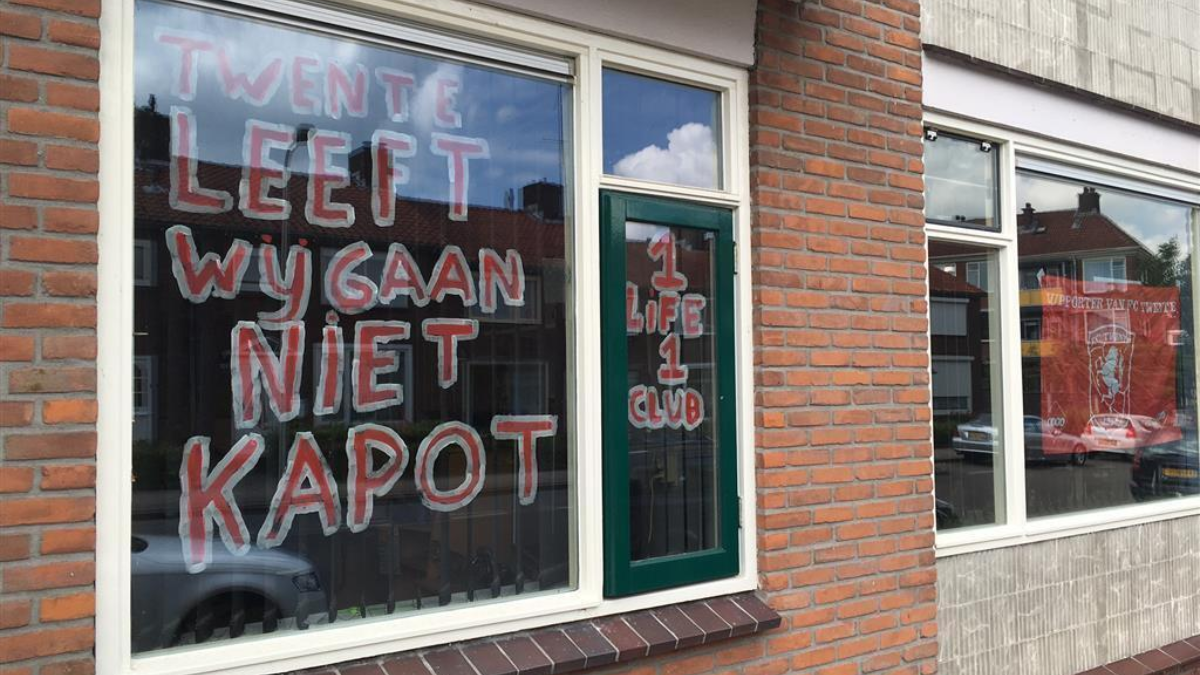 TWENTE
LEEFT
WIJ GAAN
NIET
KAPOT
1
LIFE
1
CLUB
SUPPORTER VAN FC TWENTE